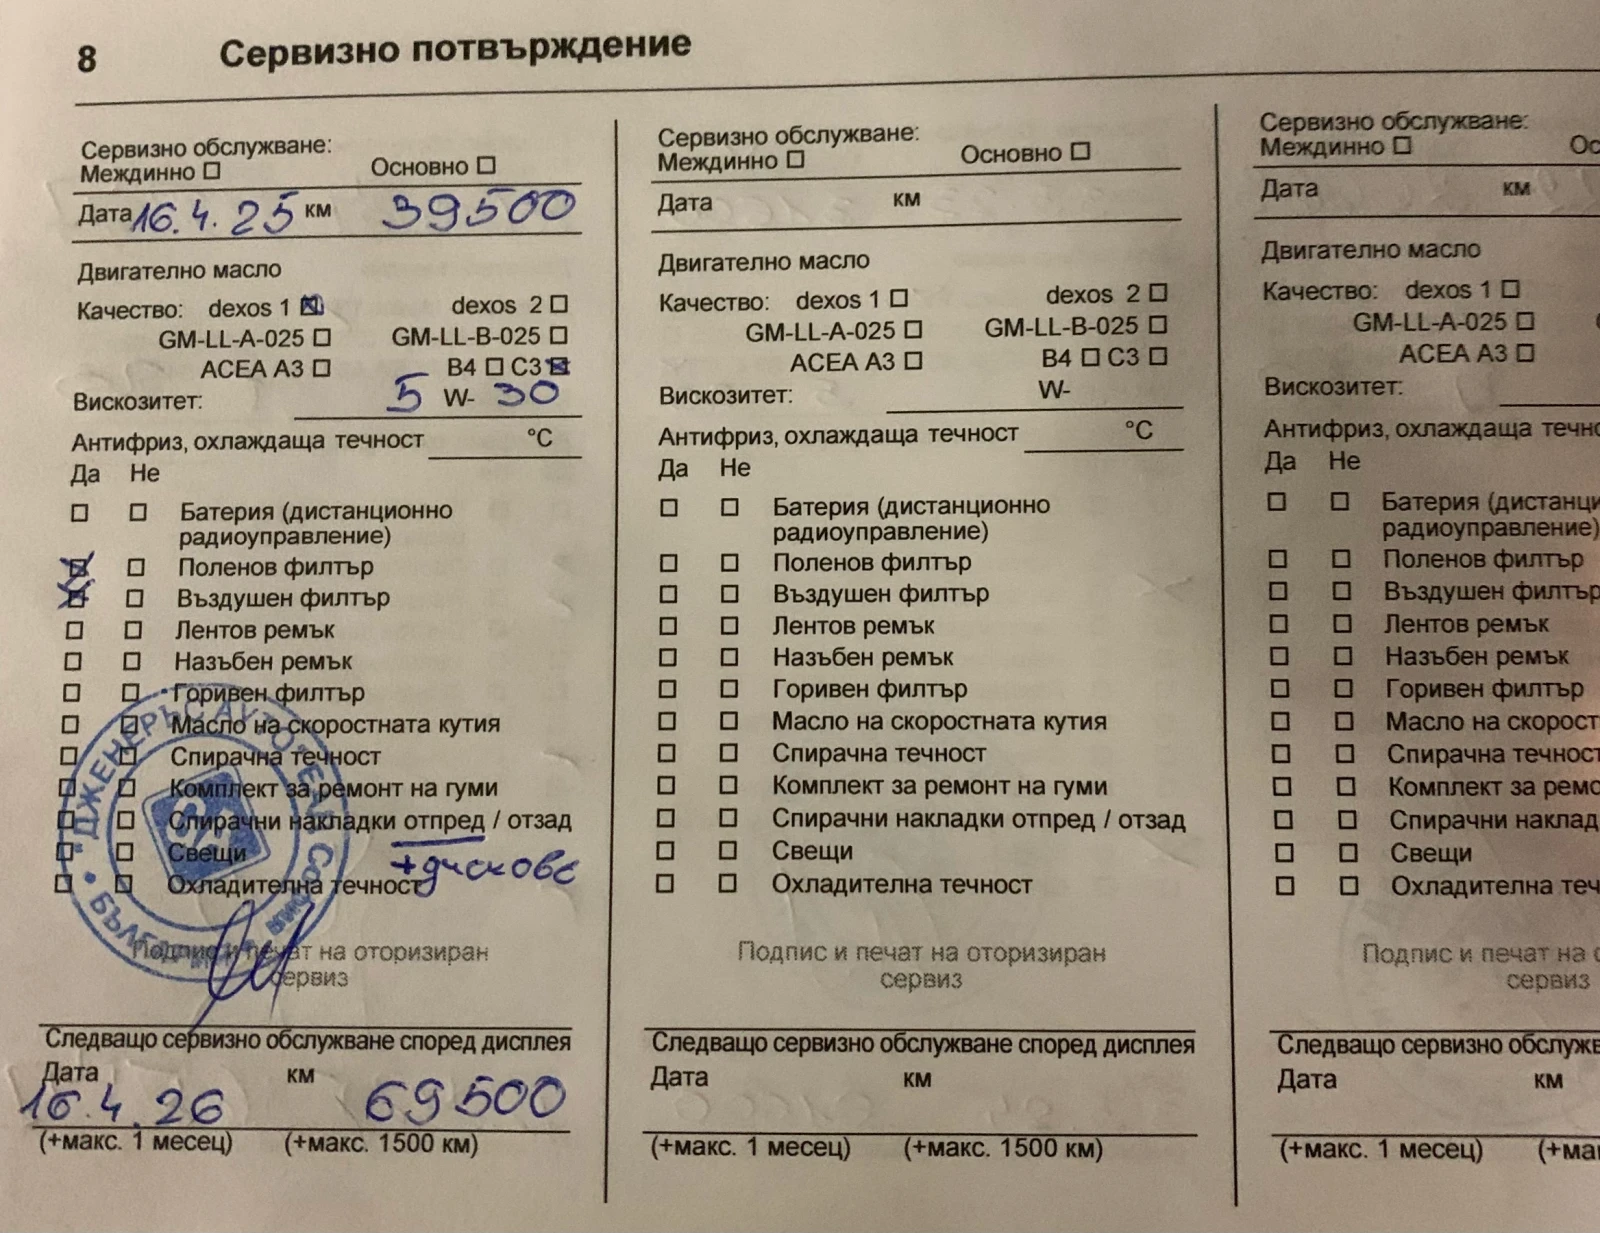 8 Сервизно потвърждение
Сервизно обслужване:
Междинно ☐ Основно ☐
Дата 16.4.25 км 39500
Двигателно масло
Качество: dexos 1 ☒ dexos 2 ☐
GM-LL-A-025 ☐ GM-LL-B-025 ☐
ACEA A3 ☐ B4 ☐ C3 ☒
Вискозитет: 5 W- 30
Антифриз, охлаждаща течност °C
Да Не
☐ ☐ Батерия (дистанционно
радиоуправление)
☒ ☐ Поленов филтър
☒ ☐ Въздушен филтър
☐ ☐ Лентов ремък
☐ ☐ Назъбен ремък
☐ ☐ Горивен филтър
☐ ☐ Масло на скоростната кутия
☐ ☐ Спирачна течност
☐ ☐ Комплект за ремонт на гуми
☐ ☐ Спирачни накладки отпред / отзад
☐ ☐ Свещи +дискове
☐ ☐ Охладителна течност
"ДЖЕНЕРЪС АУТО"
Подпис и печат на оторизиран
сервиз
Следващо сервизно обслужване според дисплея
Дата км
16.4.26 69500
(+макс. 1 месец) (+макс. 1500 км)
Сервизно обслужване:
Междинно ☐ Основно ☐
Дата км
Двигателно масло
Качество: dexos 1 ☐ dexos 2 ☐
GM-LL-A-025 ☐ GM-LL-B-025 ☐
ACEA A3 ☐ B4 ☐ C3 ☐
Вискозитет: W-
Антифриз, охлаждаща течност °C
Да Не
☐ ☐ Батерия (дистанционно
радиоуправление)
☐ ☐ Поленов филтър
☐ ☐ Въздушен филтър
☐ ☐ Лентов ремък
☐ ☐ Назъбен ремък
☐ ☐ Горивен филтър
☐ ☐ Масло на скоростната кутия
☐ ☐ Спирачна течност
☐ ☐ Комплект за ремонт на гуми
☐ ☐ Спирачни накладки отпред / отзад
☐ ☐ Свещи
☐ ☐ Охладителна течност
Подпис и печат на оторизиран
сервиз
Следващо сервизно обслужване според дисплея
Дата км
(+макс. 1 месец) (+макс. 1500 км)
Сервизно обслужване:
Междинно ☐ Ос
Дата км
Двигателно масло
Качество: dexos 1 ☐
GM-LL-A-025 ☐
ACEA A3 ☐
Вискозитет:
Антифриз, охлаждаща течно
Да Не
☐ ☐ Батерия (дистанци
радиоуправление)
☐ ☐ Поленов филтър
☐ ☐ Въздушен филтър
☐ ☐ Лентов ремък
☐ ☐ Назъбен ремък
☐ ☐ Горивен филтър
☐ ☐ Масло на скорост
☐ ☐ Спирачна течност
☐ ☐ Комплект за ремо
☐ ☐ Спирачни наклад
☐ ☐ Свещи
☐ ☐ Охладителна теч
Подпис и печат на о
сервиз
Следващо сервизно обслужв
Дата км
(+макс. 1 месец) (+ма